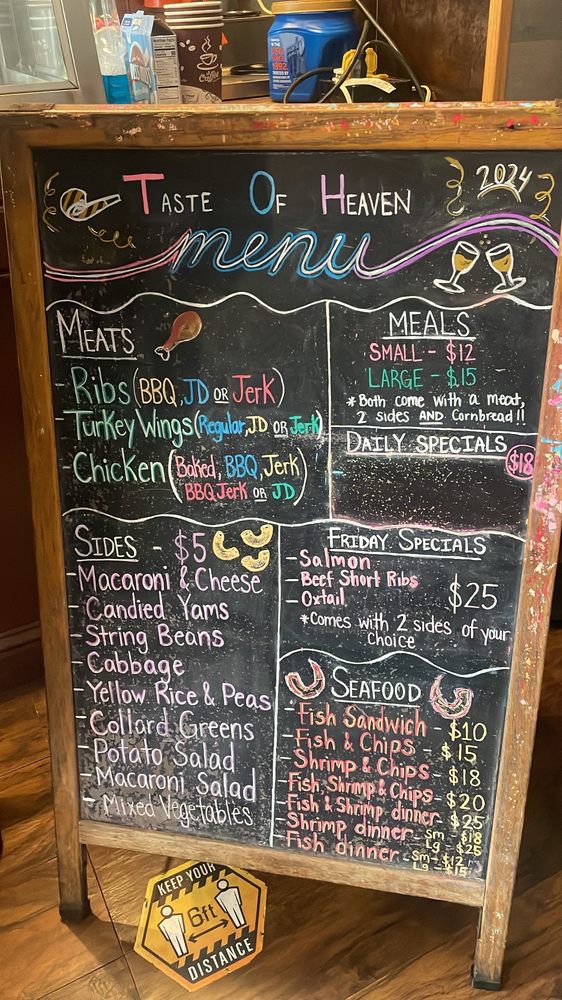 Coffee
1892
2024
TASTE OF HEAVEN
menu
MEATS
- Ribs (BBQ, JD OR Jerk)
- Turkey Wings (Regular, JD OR Jerk)
- Chicken (Baked, BBQ, Jerk
BBQ Jerk OR JD)
MEALS
SMALL - $12
LARGE - $15
* Both come with a meat,
2 sides AND Cornbread!!
DAILY SPECIALS
$18
SIDES - $5
- Macaroni & Cheese
- Candied Yams
- String Beans
- Cabbage
- Yellow Rice & Peas
- Collard Greens
- Potato Salad
- Macaroni Salad
- Mixed Vegetables
FRIDAY SPECIALS
- Salmon
- Beef Short Ribs
- Oxtail
$25
* Comes with 2 sides of your
choice
SEAFOOD
- Fish Sandwich - $10
- Fish & Chips - $15
- Shrimp & Chips - $18
- Fish, Shrimp & Chips - $20
- Fish & Shrimp dinner - $25
- Shrimp dinner - Sm - $18
Lg - $25
- Fish dinner - Sm - $12
Lg - $15
KEEP YOUR
6ft
DISTANCE